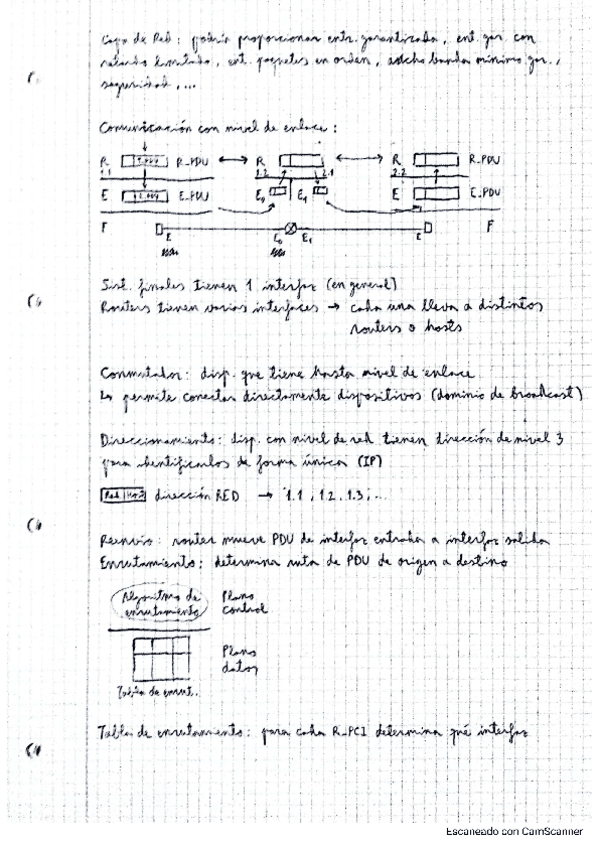 Capa de Red: podría proporcionar entr. garantizada, ent. gar. con
retardo limitado, ent. paquetes en orden, ancho banda mínimo gar.,
seguridad,...
Comunicación con nivel de enlace:
R R_PDU R R R_PDU
1.1 1.2 2.1 2.2
E E_PDU E0 E1 E E_PDU
F F
E E0 E1 E
Sist. finales tienen 1 interfaz (en general)
Routers tienen varias interfaces → cada una lleva a distintos
routers o hosts
Conmutador: disp. que tiene hasta nivel de enlace
↳ permite conectar directamente dispositivos (dominio de broadcast)
Direccionamiento: disp. con nivel de red tienen dirección de nivel 3
para identificarlos de forma única (IP)
Red Host dirección RED → 1.1, 1.2, 1.3,...
Reenvío: router mueve PDU de interfaz entrada a interfaz salida
Enrutamiento: determina ruta de PDU de origen a destino
Algoritmo de Plano
enrutamiento control
Plano
datos
Tabla de enrut..
Tabla de enrutamiento: para cada R_PCI determina qué interfaz
Escaneado con CamScanner